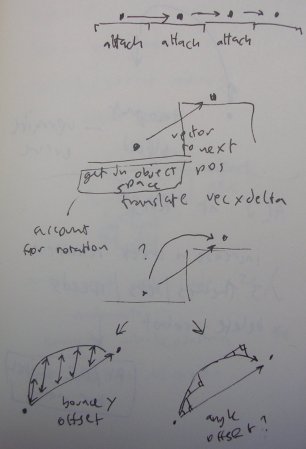 attach attach attach
vector
to next
pos
get in object
space
translate vec x delta
account
for rotation
?
bounce y
offset
angle
offset?